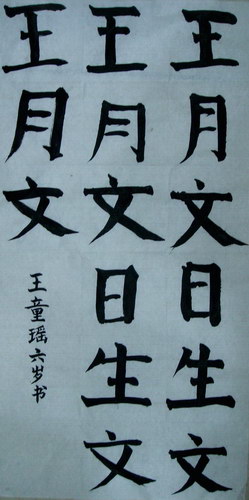 王月文日生文
王月文日生文
王月文
王童瑶六岁书